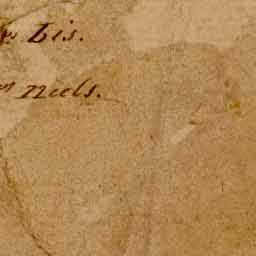 Lis.
Neels.